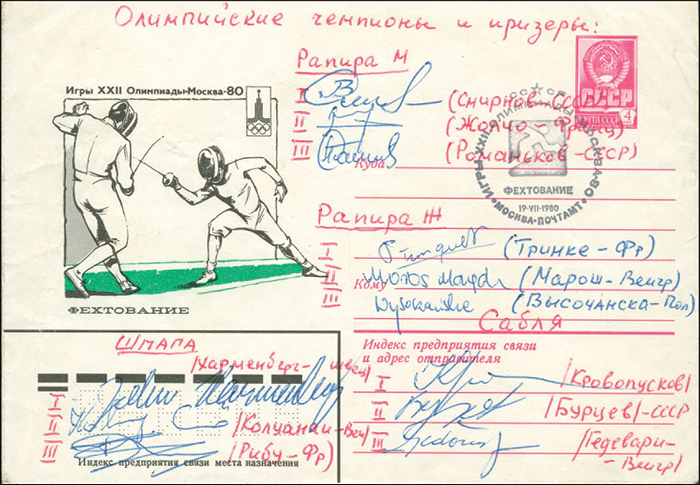 Олимпийские чемпионы и призеры:
Рапира М
Игры XXII Олимпиады-Москва-80
СССР
ПОЧТА СССР 4
I (Смирнов-СССР)
II (Жолчо-Франц)
III (Романьков-СССР)
Куда
СССР
ИГРЫ XXII ОЛИМПИАДЫ МОСКВА-80
ФЕХТОВАНИЕ
19-VII-1980
МОСКВА-ПОЧТАМТ
Рапира Ж
I (Тринке-Фр)
II Maros Magda (Марош-Венгр)
Кому
III Wysoczańska (Высочанска-Пол)
ФЕХТОВАНИЕ
Сабля
Индекс предприятия связи
и адрес отправителя
ШПАГА
/Харменберг-швец/
I
II /Колцонаи-Вен/
III /Рибу-Фр/
I /Кровопусков/
II /Бурцев/-СССР
III /Гедевари-
Венгр/
Индекс предприятия связи места назначения